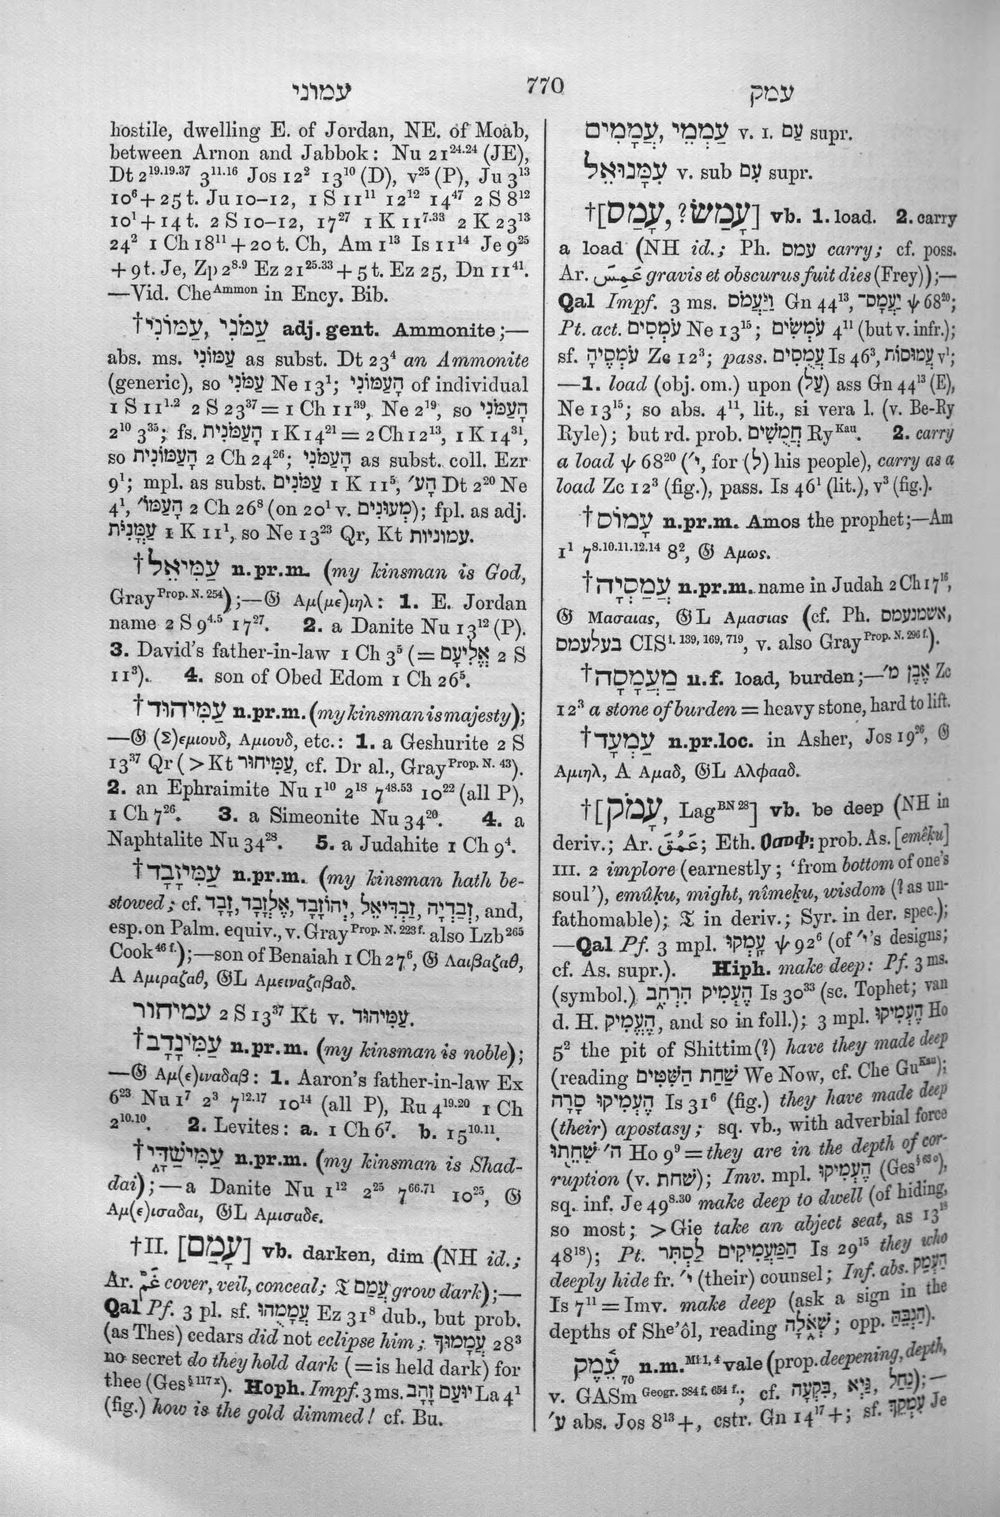 עמוני
770
עמק
hostile, dwelling E. of Jordan, NE. of Moab,
between Arnon and Jabbok: Nu 21²⁴·²⁴ (JE),
Dt 2¹⁹·¹⁹·³⁷ 3¹¹·¹⁶ Jos 12² 13¹⁰ (D), v²⁵ (P), Ju 3¹³
10⁶ + 25 t. Ju 10–12, 1 S 11¹¹ 12¹² 14⁴⁷ 2 S 8¹²
10¹ + 14 t. 2 S 10–12, 17²⁷ 1 K 11⁷·³³ 2 K 23¹³
24² 1 Ch 18¹¹ + 20 t. Ch, Am 1¹³ Is 11¹⁴ Je 9²⁵
+ 9 t. Je, Zp 2⁸·⁹ Ez 21²⁵·³³ + 5 t. Ez 25, Dn 11⁴¹.
—Vid. Che ᴬᵐᵐᵒⁿ in Ency. Bib.
†עַמּוֹנִי, עַמֹּנִי adj. gent. Ammonite;—
abs. ms. עַמּוֹנִי as subst. Dt 23⁴ an Ammonite
(generic), so עַמֹּנִי Ne 13¹; הָעַמּוֹנִי of individual
1 S 11¹·² 2 S 23³⁷ = 1 Ch 11³⁹, Ne 2¹⁹, so הָעַמֹּנִי
2¹⁰ 3³⁵; fs. הָעַמֹּנִית 1 K 14²¹ = 2 Ch 12¹³, 1 K 14³¹,
so הָעַמּוֹנִית 2 Ch 24²⁶; הָעַמֹּנִי as subst. coll. Ezr
9¹; mpl. as subst. עַמֹּנִים 1 K 11⁵, הָע׳ Dt 2²⁰ Ne
4¹, הָעַמּוֹ׳ 2 Ch 26⁸ (on 20¹ v. מְעוּנִים); fpl. as adj.
עַמֳּנִיֹּת 1 K 11¹, so Ne 13²³ Qr, Kt עמוניות.
†עַמִּיאֵל n.pr.m. (my kinsman is God,
Gray Prop. N. 254);—𝔊 Αμ(με)ιηλ: 1. E. Jordan
name 2 S 9⁴·⁵ 17²⁷. 2. a Danite Nu 13¹² (P).
3. David's father-in-law 1 Ch 3⁵ (= אֱלִיעָם 2 S
11³). 4. son of Obed Edom 1 Ch 26⁵.
†עַמִּיהוּד n.pr.m. (my kinsman is majesty);
—𝔊 (Σ)εμιουδ, Αμιουδ, etc.: 1. a Geshurite 2 S
13³⁷ Qr (> Kt עַמִּיחוּר, cf. Dr al., Gray Prop. N. 43).
2. an Ephraimite Nu 1¹⁰ 2¹⁸ 7⁴⁸·⁵³ 10²² (all P),
1 Ch 7²⁶. 3. a Simeonite Nu 34²⁰. 4. a
Naphtalite Nu 34²⁸. 5. a Judahite 1 Ch 9⁴.
†עַמִּיזָבָד n.pr.m. (my kinsman hath be-
stowed; cf. זָבָד, אֶלְזָבָד, יְהוֹזָבָד, זַבְדִּיאֵל, זְבַדְיָה, and,
esp. on Palm. equiv., v. Gray Prop. N. 223 f. also Lzb²⁶⁵
Cook⁴⁶ ᶠ·);—son of Benaiah 1 Ch 27⁶, 𝔊 Λαιβαζαθ,
A Αμιραζαθ, 𝔊L Αμειναζαβαδ.
עמיחור 2 S 13³⁷ Kt v. עַמִּיהוּד.
†עַמִּינָדָב n.pr.m. (my kinsman is noble);
—𝔊 Αμ(ε)ιναδαβ: 1. Aaron's father-in-law Ex
6²³ Nu 1⁷ 2³ 7¹²·¹⁷ 10¹⁴ (all P), Ru 4¹⁹·²⁰ 1 Ch
2¹⁰·¹⁰. 2. Levites: a. 1 Ch 6⁷. b. 15¹⁰·¹¹.
†עַמִּישַׁדַּי n.pr.m. (my kinsman is Shad-
dai);—a Danite Nu 1¹² 2²⁵ 7⁶⁶·⁷¹ 10²⁵, 𝔊
Αμ(ε)ισαδαι, 𝔊L Αμισαδε.
†II. [עָמַם] vb. darken, dim (NH id.;
Ar. غَمَّ cover, veil, conceal; 𝔗 עֲמַם grow dark);—
Qal Pf. 3 pl. sf. עֲמָמֻהוּ Ez 31⁸ dub., but prob.
(as Thes) cedars did not eclipse him; עֲמָמוּךָ 28³
no secret do they hold dark (= is held dark) for
thee (Ges§117x). Hoph. Impf. 3 ms. יוּעַם זָהָב La 4¹
(fig.) how is the gold dimmed! cf. Bu.
עַמְמֵי, עֲמָמִים v. I. עַם supr.
עִמָּנוּאֵל v. sub עִם supr.
†[עָמַס, עָמַשׂ?] vb. 1. load. 2. carry
a load (NH id.; Ph. עמס carry; cf. poss.
Ar. غَمِسَ gravis et obscurus fuit dies (Frey));—
Qal Impf. 3 ms. וַיַּעֲמֹס Gn 44¹³, יַעֲמָס־ ψ 68²⁰;
Pt. act. עֹמְסִים Ne 13¹⁵; עֹמְשִׂים 4¹¹ (but v. infr.);
sf. עֹמְסֶיהָ Zc 12³; pass. עֲמֻסִים Is 46³, עֲמוּסוֹת v¹;
—1. load (obj. om.) upon (עַל) ass Gn 44¹³ (E),
Ne 13¹⁵; so abs. 4¹¹, lit., si vera l. (v. Be-Ry
Ryle); but rd. prob. חֲמֻשִׁים Ry Kau. 2. carry
a load ψ 68²⁰ (י׳, for (לְ) his people), carry as a
load Zc 12³ (fig.), pass. Is 46¹ (lit.), v³ (fig.).
†עָמוֹס n.pr.m. Amos the prophet;—Am
1¹ 7⁸·¹⁰·¹¹·¹²·¹⁴ 8², 𝔊 Αμως.
†עֲמַסְיָה n.pr.m. name in Judah 2 Ch 17¹⁶,
𝔊 Μασαιας, 𝔊L Αμασιας (cf. Ph. אשמנעמס,
בעלעמס CIS i. 139, 169, 719, v. also Gray Prop. N. 296 f.).
†מַעֲמָסָה n.f. load, burden;—אֶבֶן מ׳ Zc
12³ a stone of burden = heavy stone, hard to lift.
†עַמְעָד n.pr.loc. in Asher, Jos 19²⁶, 𝔊
Αμιηλ, A Αμαδ, 𝔊L Αλφααδ.
†[עָמֹק, Lag BN 28] vb. be deep (NH in
deriv.; Ar. عَمُقَ; Eth. ዐመቀ: prob. As. [emêḳu]
III. 2 implore (earnestly; 'from bottom of one's
soul'), emûḳu, might, nîmeḳu, wisdom (? as un-
fathomable); 𝔗 in deriv.; Syr. in der. spec.);
—Qal Pf. 3 mpl. עָמְקוּ ψ 92⁶ (of י׳'s designs;
cf. As. supr.). Hiph. make deep: Pf. 3 ms.
(symbol.) הֶעְמִיק הִרְחִב Is 30³³ (sc. Tophet; van
d. H. הֶעֱמִיק, and so in foll.); 3 mpl. הֶעְמִיקוּ Ho
5² the pit of Shittim(?) have they made deep
(reading שַׁחַת הַשִּׁטִּים We Now, cf. Che Gu Kau);
הֶעְמִיקוּ סָרָה Is 31⁶ (fig.) they have made deep
(their) apostasy; sq. vb., with adverbial force
ה׳ שִׁחֵתוּ Ho 9⁹ = they are in the depth of cor-
ruption (v. שׁחת); Imv. mpl. הֶעְמִיקוּ (Ges§63o),
sq. inf. Je 49⁸·³⁰ make deep to dwell (of hiding,
so most; > Gie take an abject seat, as 13¹⁸
48¹⁸); Pt. הַמַּעֲמִיקִים לַסְתִּר Is 29¹⁵ they who
deeply hide fr. י׳ (their) counsel; Inf. abs. הַעְמֵק
Is 7¹¹ = Imv. make deep (ask a sign in the
depths of Sheʾôl, reading שְׁאֹלָה; opp. הַגְבֵּהַּ).
עֵ֫מֶק₇₀ n.m. Mi 1, 4 vale (prop. deepening, depth,
v. GASm Geogr. 384 f. 654 f.; cf. בִּקְעָה, גַּיְא, נַחַל);—
ע׳ abs. Jos 8¹³ +, cstr. Gn 14¹⁷ +; sf. עִמְקֵךְ Je